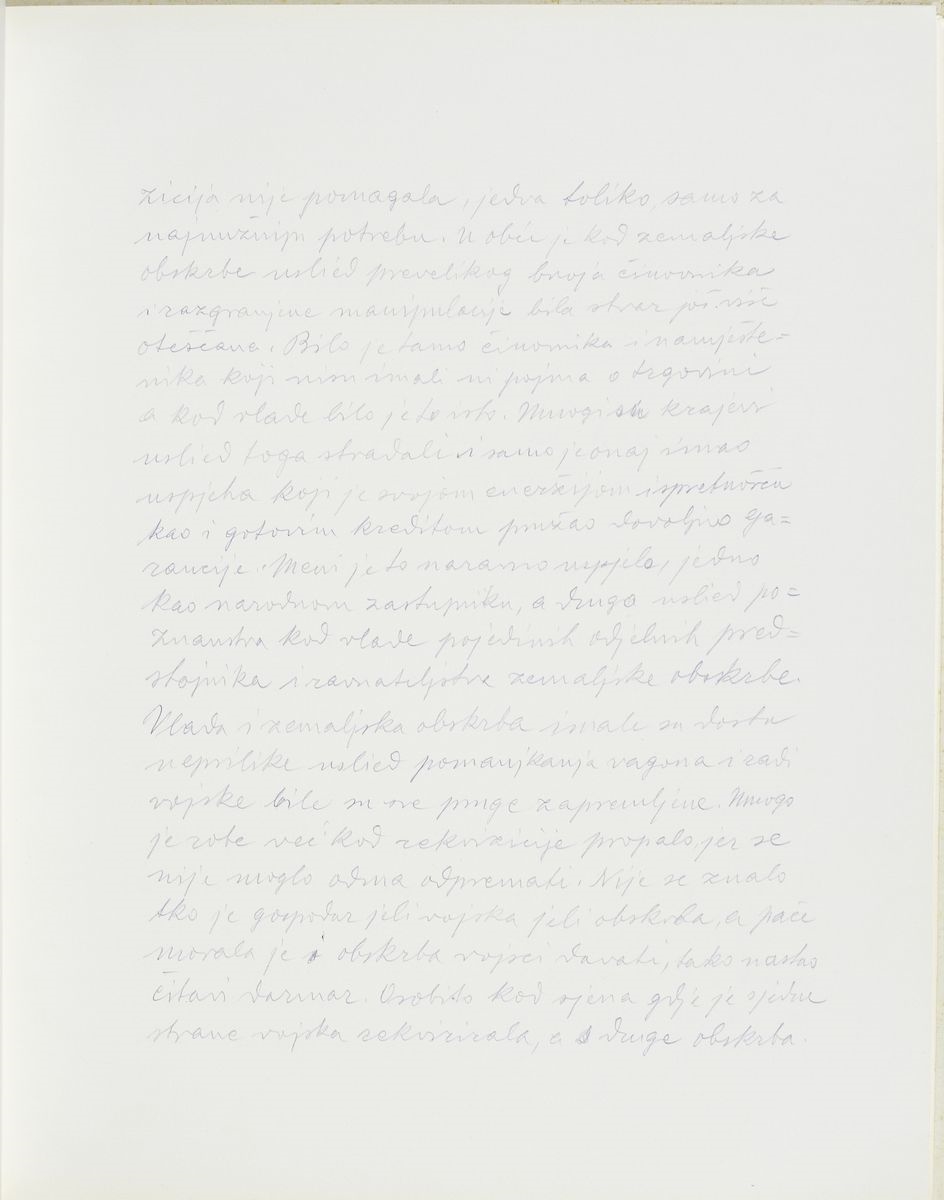 zicija nije pomagala, jedva toliko, samo za
najnužniju potrebu. U obće je kod zemaljske
obskrbe uslied prevelikog broja činovnika
i razgranjene manipulacije bila stvar još više
otešćana. Bilo je tamo činovnika i namješte=
nika koji nisu imali ni pojma o trgovini
a kod vlade bilo je to isto. Mnogi su krajevi
uslied toga stradali i samo je onaj imao
uspjeha koji je svojom eneržijom i spretnošću
kao i gotovim kreditom pružao dovoljno ga=
rancije. Meni je to naravno uspjelo, jedno
kao narodnom zastupniku, a drugo uslied po=
znanstva kod vlade pojedinih odjelnih pred=
stojnika i ravnateljstva zemaljske obskrbe.
Vlada i zemaljska obskrba imale su dosta
neprilike uslied pomanjkanja vagona i radi
vojske bile su sve pruge zapremljene. Mnogo
je robe već kod rekvizicije propalo, jer se
nije moglo odma odpremati. Nije se znalo
tko je gospodar jeli vojska jeli obskrba, a pače
morala je i obskrba vojsci davati, tako nastao
čitavi darmar. Osobito kod sjena gdje je s jedne
strane vojska rekvirirala, a s druge obskrba.